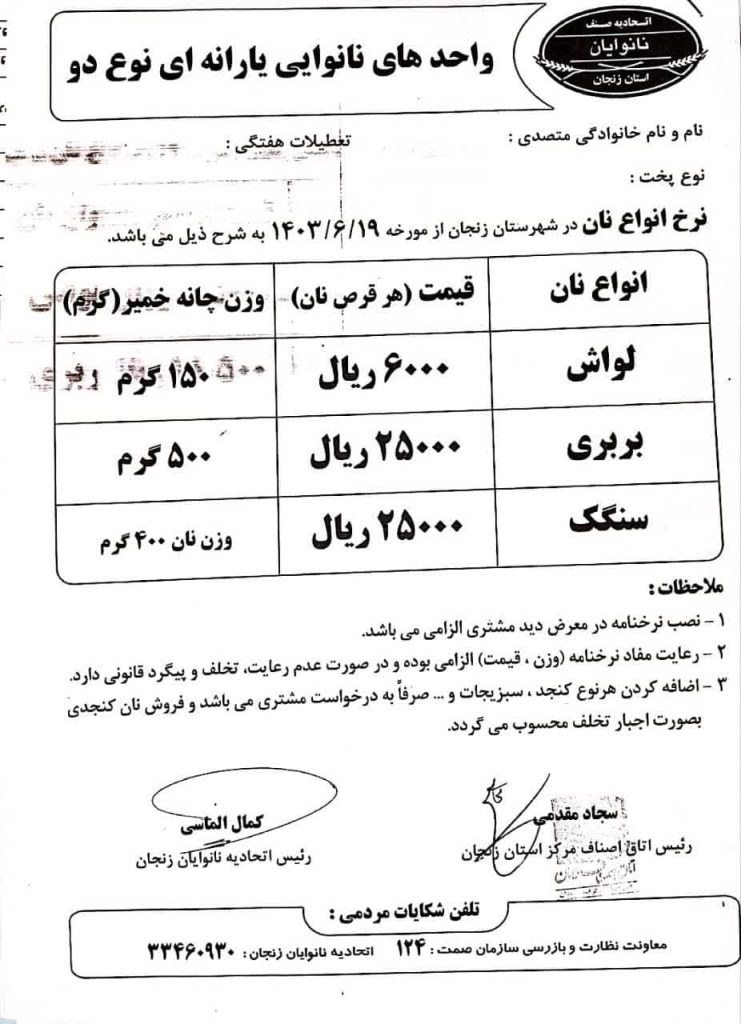 اتحادیه صنف
نانوایان
استان زنجان
واحد های نانوایی یارانه ای نوع دو
نام و نام خانوادگی متصدی : تعطیلات هفتگی :
نوع پخت :
نرخ انواع نان در شهرستان زنجان از مورخه ۱۴۰۳/۶/۱۹ به شرح ذیل می باشد.
انواع نان قیمت (هر قرص نان) وزن چانه خمیر(گرم)
لواش ۶۰۰۰ ریال ۱۵۰ گرم
بربری ۲۵۰۰۰ ریال ۵۰۰ گرم
سنگک ۲۵۰۰۰ ریال وزن نان ۴۰۰ گرم
ملاحظات :
۱ - نصب نرخنامه در معرض دید مشتری الزامی می باشد.
۲ - رعایت مفاد نرخنامه (وزن ، قیمت) الزامی بوده و در صورت عدم رعایت، تخلف و پیگرد قانونی دارد.
۳ - اضافه کردن هرنوع کنجد ، سبزیجات و ... صرفاً به درخواست مشتری می باشد و فروش نان کنجدی
بصورت اجبار تخلف محسوب می گردد.
سجاد مقدمی کمال الماسی
رئیس اتاق اصناف مرکز استان زنجان رئیس اتحادیه نانوایان زنجان
تلفن شکایات مردمی :
معاونت نظارت و بازرسی سازمان صمت : ۱۲۴ اتحادیه نانوایان زنجان : ۳۳۴۶۰۹۳۰